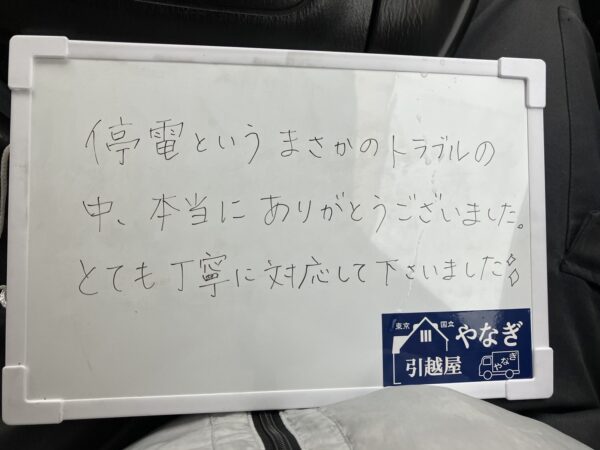 停電というまさかのトラブルの
中、本当にありがとうございました。
とても丁寧に対応して下さいました
東京 国立 やなぎ
引越屋 やなぎ